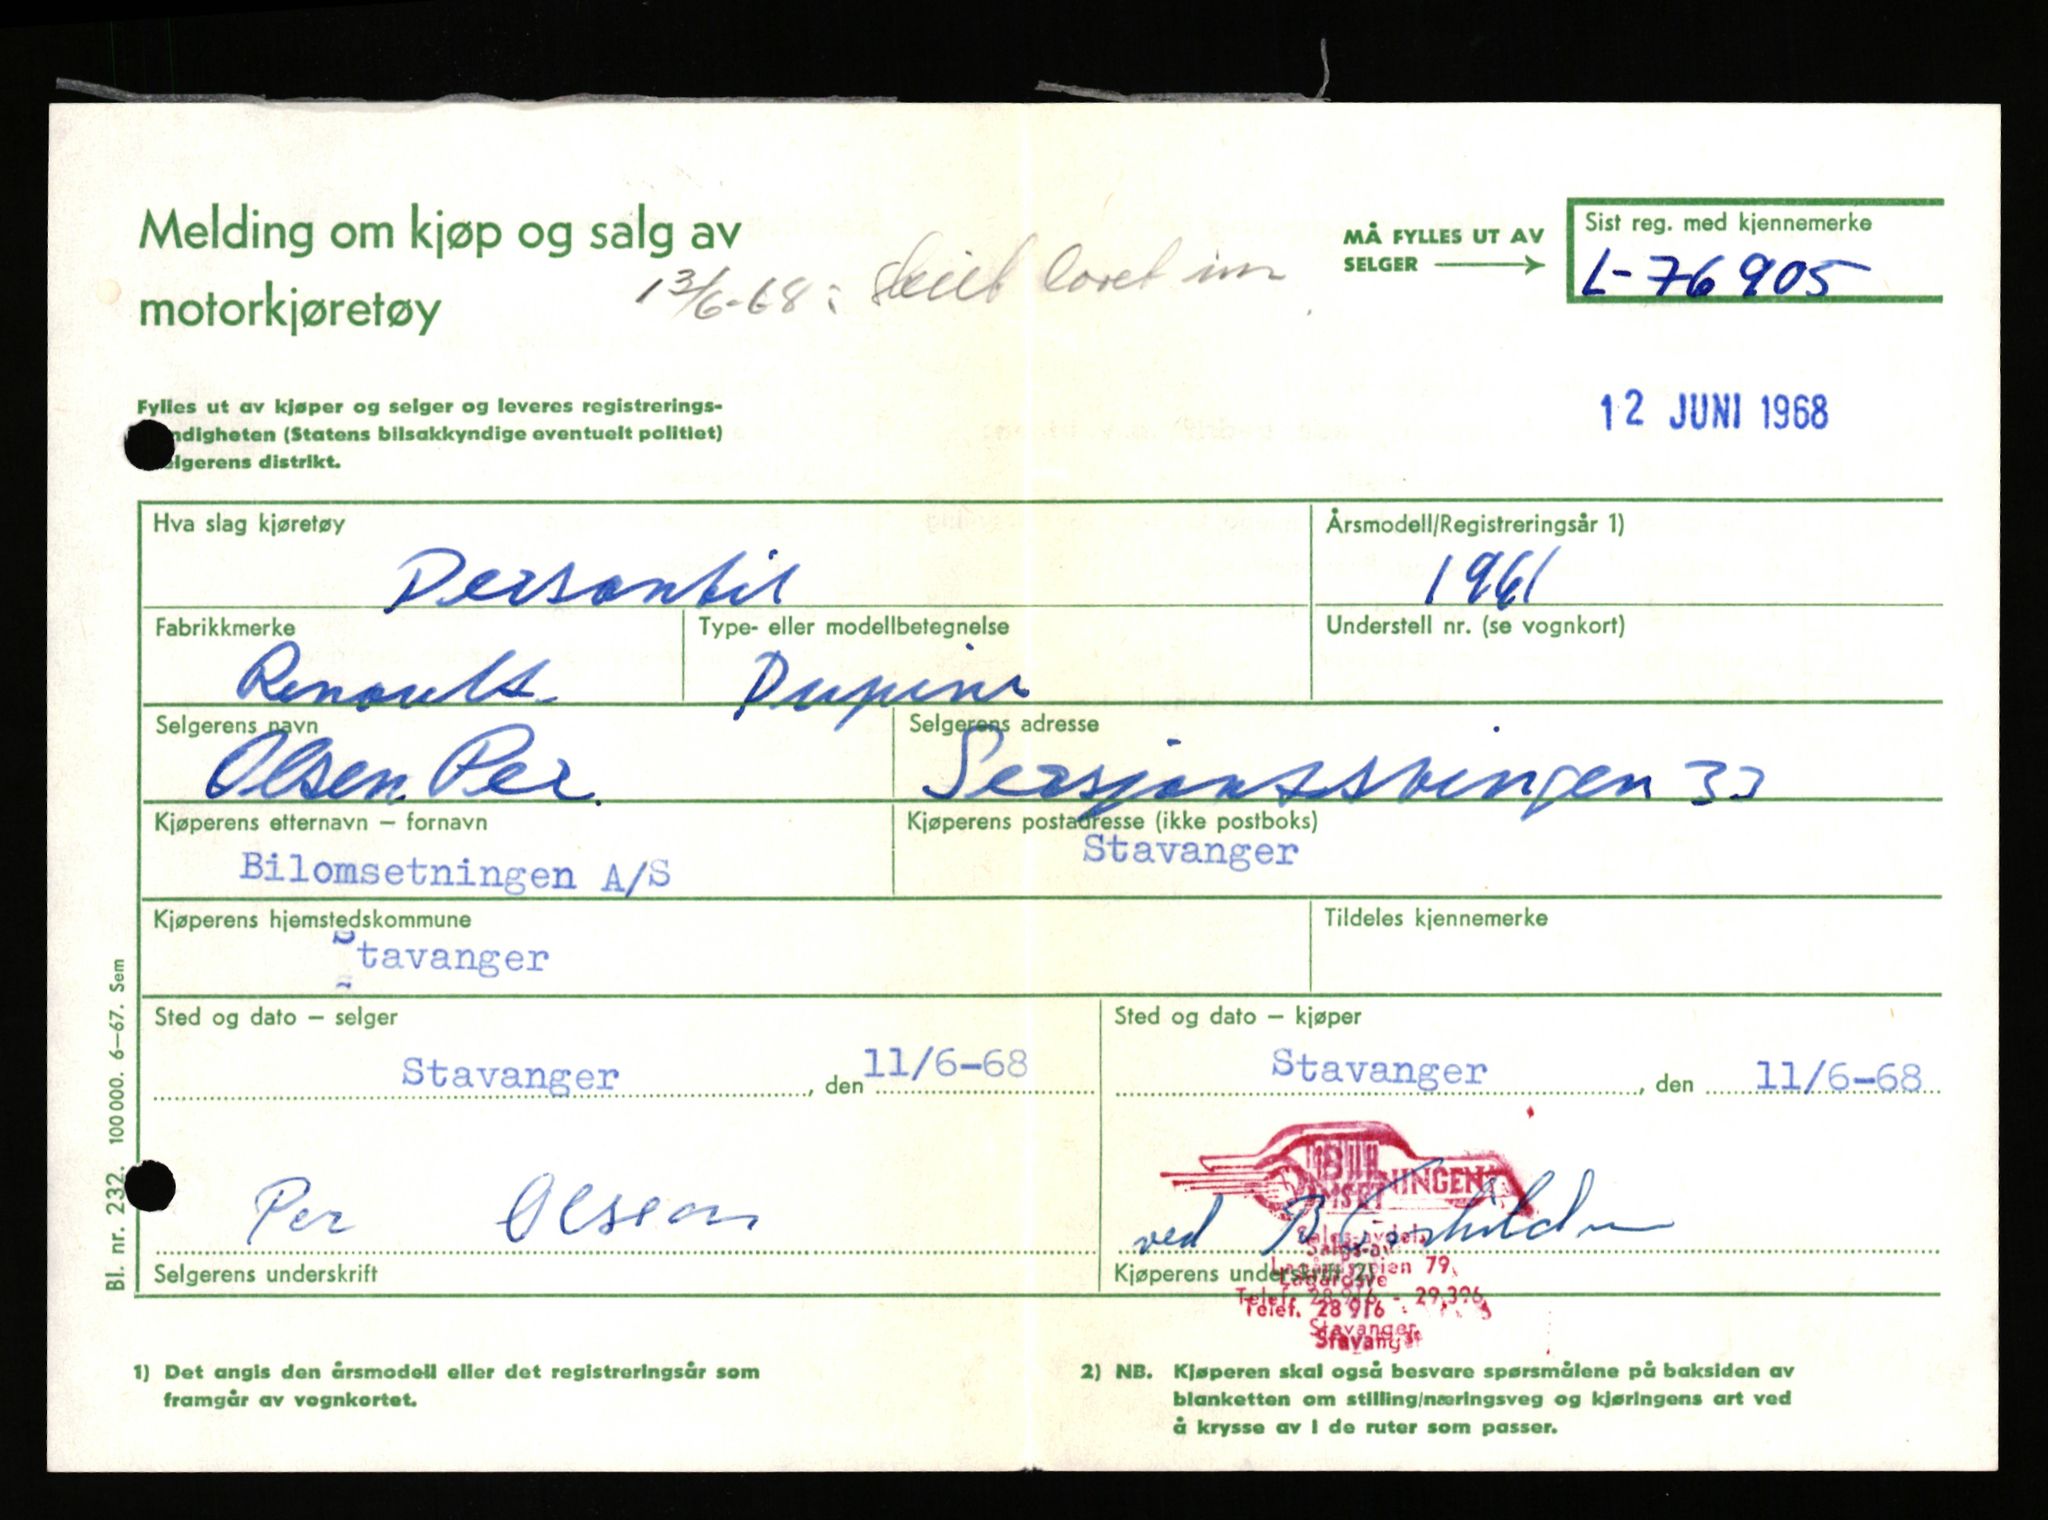 Melding om kjøp og salg av
motorkjøretøy
13/6-68: skilt
MÅ FYLLES UT AV
SELGER
Sist reg. med kjennemerke
L-76905
12 JUNI 1968
Fylles ut av kjøper og selger og leveres registrerings-
ndigheten (Statens bilsakkyndige eventuelt politiet)
lgerens distrikt.
Hva slag kjøretøy
Personbil
Årsmodell/Registreringsår 1)
1961
Fabrikkmerke
Renault
Type- eller modellbetegnelse
Understell nr. (se vognkort)
Selgerens navn
Olsen Per.
Selgerens adresse
33
Kjøperens etternavn – fornavn
Bilomsetningen A/S
Kjøperens postadresse (ikke postboks)
Stavanger
Kjøperens hjemstedskommune
Stavanger
Tildeles kjennemerke
Sted og dato – selger
Stavanger, den 11/6-68
Sted og dato – kjøper
Stavanger, den 11/6-68
Per Olsen
Selgerens underskrift
ved
Kjøperens underskrift 2)
Salgs-avdel.
79.
Telef. 28 916 - 29.396
Stavanger
1) Det angis den årsmodell eller det registreringsår som
framgår av vognkortet.
2) NB. Kjøperen skal også besvare spørsmålene på baksiden av
blanketten om stilling/næringsveg og kjøringens art ved
å krysse av i de ruter som passer.
Bl. nr. 232. 100 000. 6–67. Sem